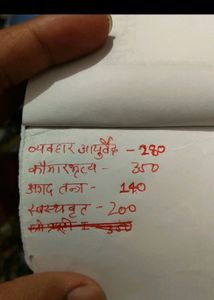 व्यवहार आयुर्वेद - 280
कौमारभृत्य - 350
अगद तन्त्र - 140
स्वस्थवृत - 200